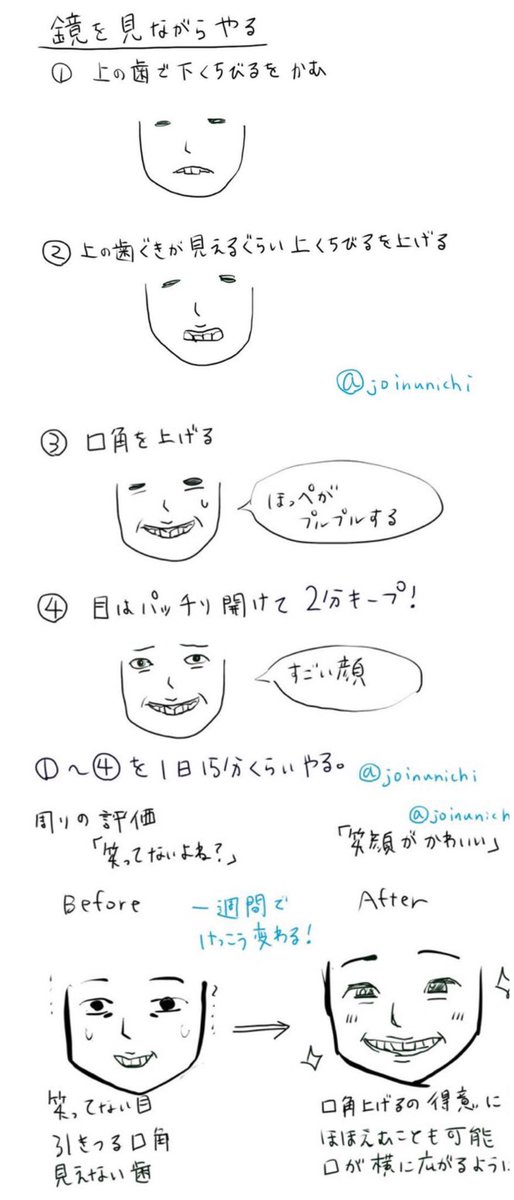 鏡を見ながらやる
① 上の歯で下くちびるをかむ
② 上の歯ぐきが見えるぐらい上くちびるを上げる
@joinunichi
③ 口角を上げる
ほっぺが
プルプルする
④ 目はパッチリ開けて2分キープ!
すごい顔
①〜④を1日15分くらいやる。
@joinunichi
周りの評価
「笑ってないよね?」
@joinunich
「笑顔がかわいい」
Before
一週間で
けっこう変わる!
After
笑ってない目
引きつる口角
見えない歯
口角上げるの得意に
ほほえむことも可能
口が横に広がるように